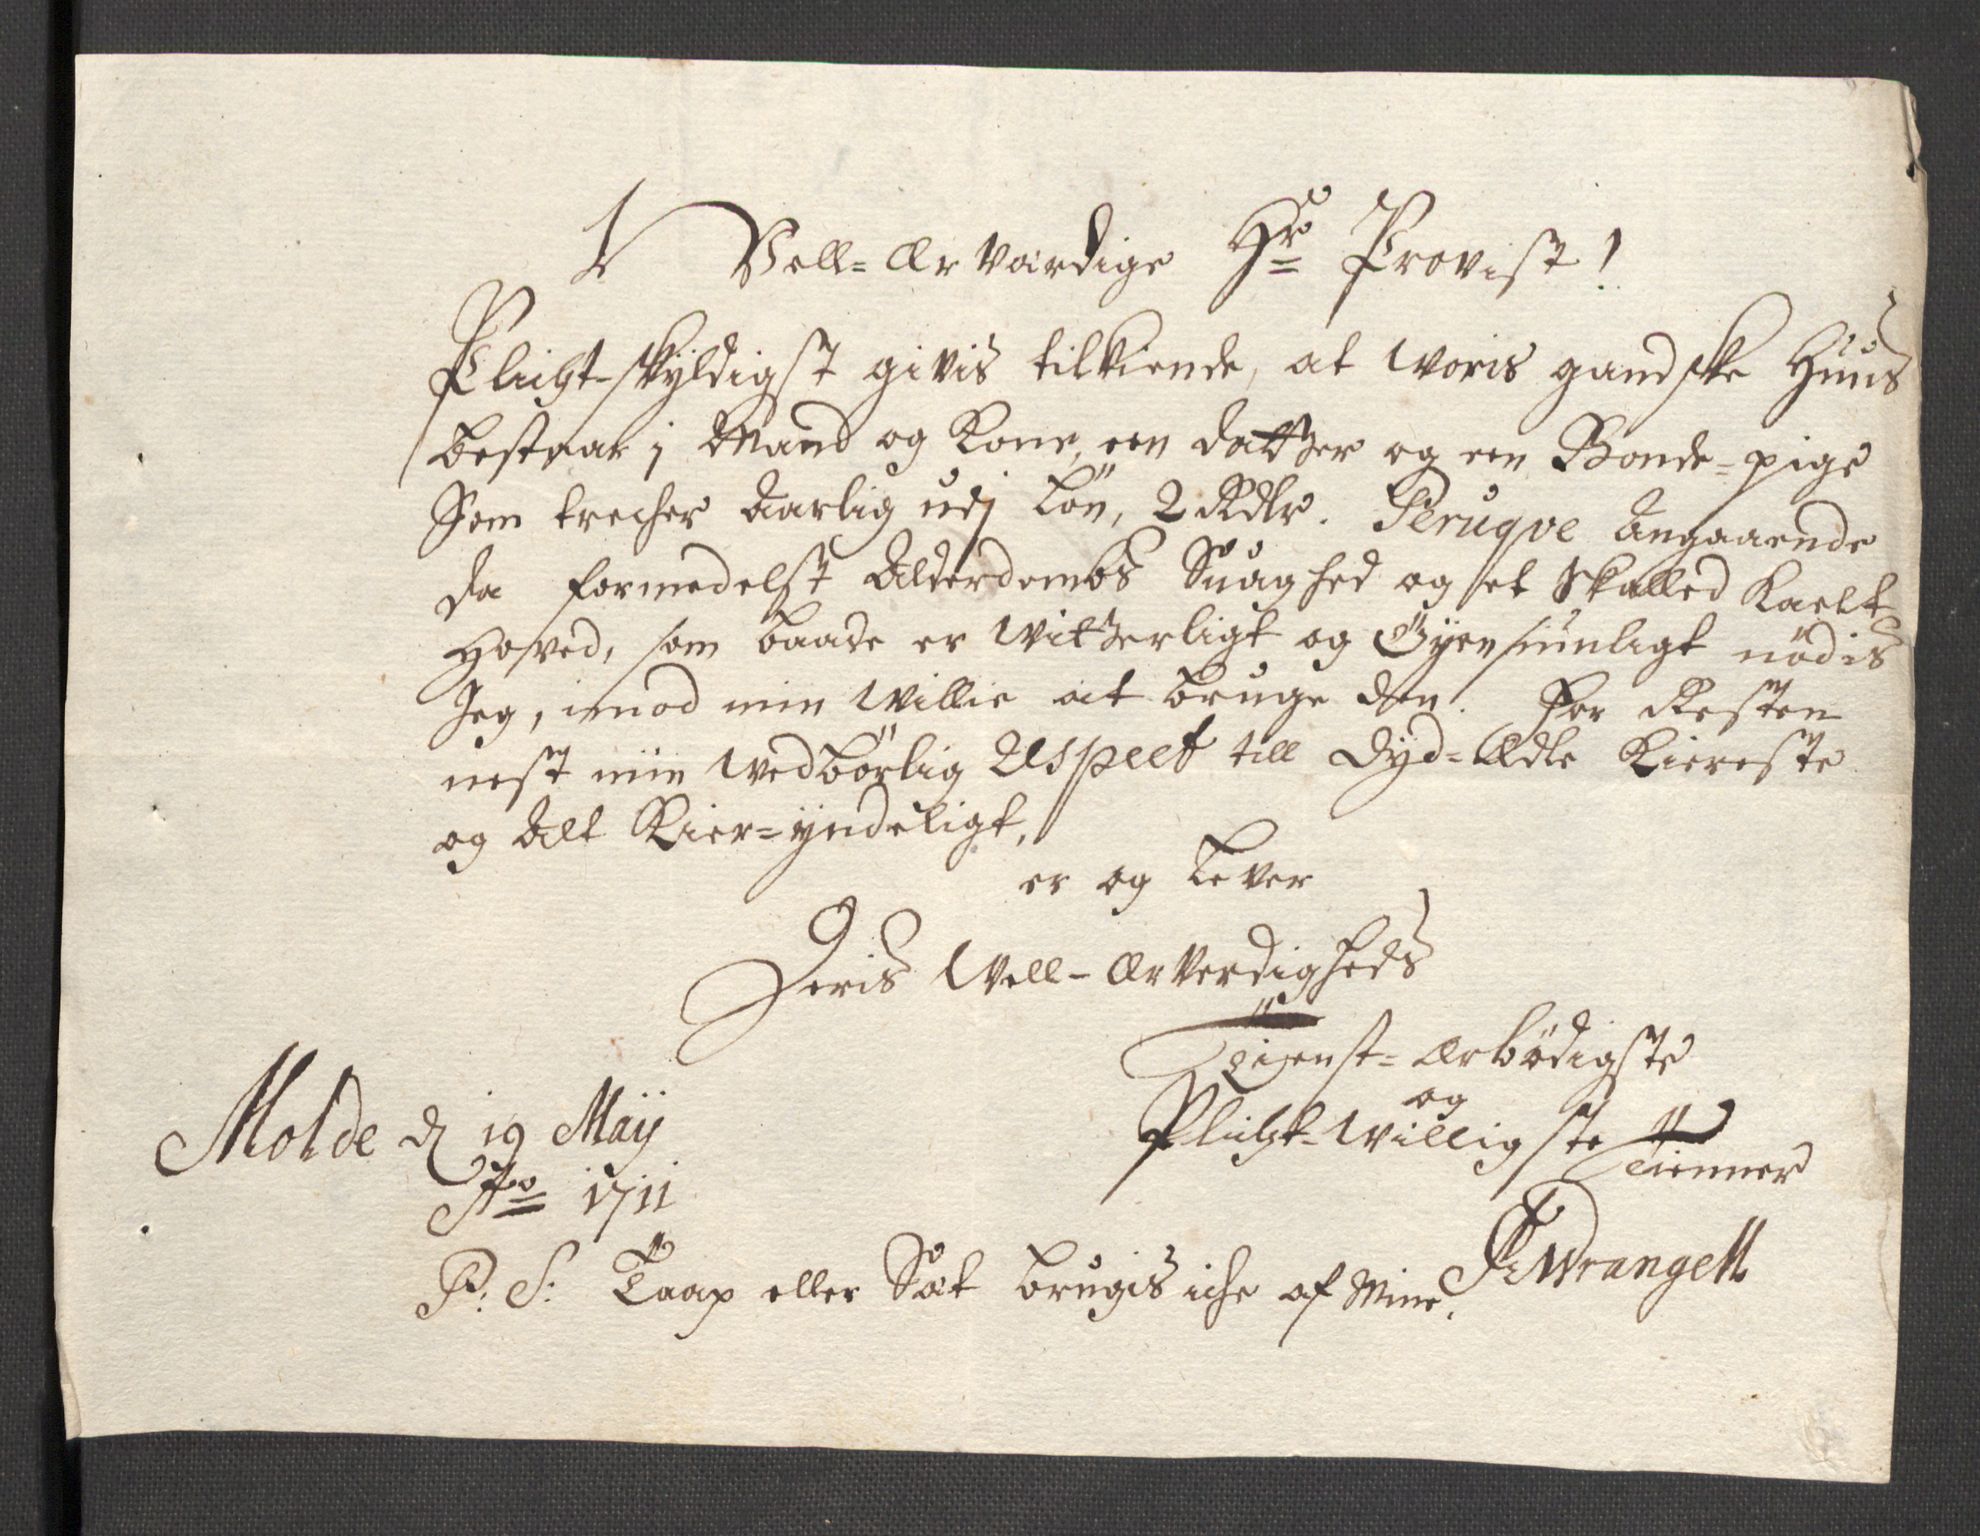 Vell-Ærværdige Hr Provist!
Plicht-skyldigst givis tilkiende, at Woris gandske Huus
bestaar j Mand og Kone, een datter og een Bonde-pige
Som trecher Aarlig udj Lön, 2 Rdlr. Peruqve Angaaende
da formedelst Alderdombs Suaghed og et Skalled Kaelt
Hoved, som baade er Witterligt og Öyensiunligt nödis
Jeg, imod min Willie at bruge den. For Resten
nest min Wedbörlig Respect till Dyd-Ædle Kiereste
og Alt Kier-yndeligt,
er og Lever
Deris Well-ærverdigheds
Tienst-ærbödigste
og
Plicht-Willigste Tienner
Molde d 19 Maij
Ao 1711
FWrangell
P: S: Taap eller Sæt brugis iche af Mine.